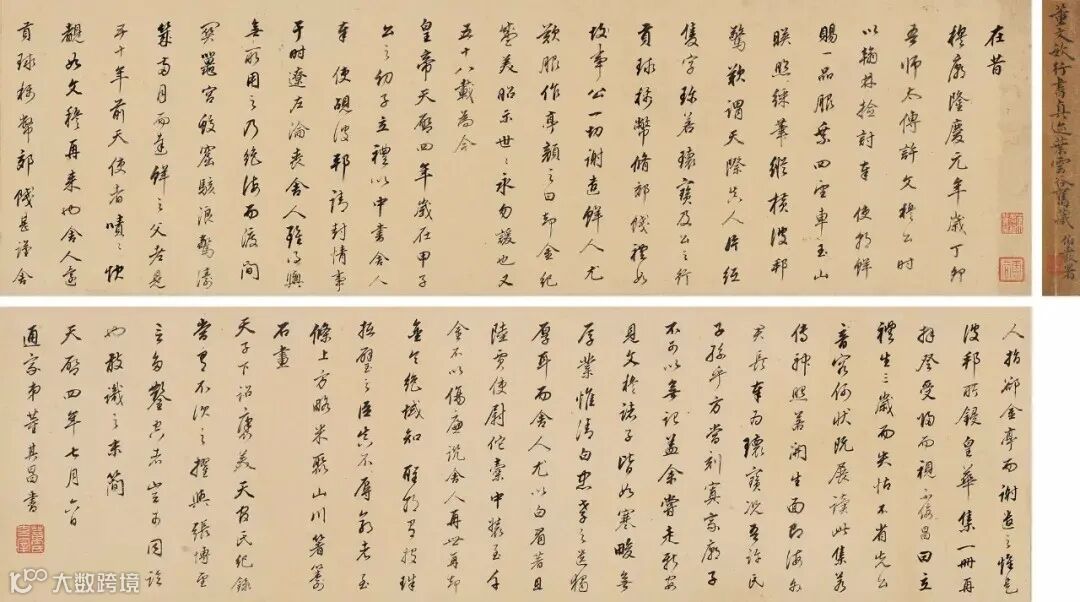 董文敏行書真迹葉雲谷舊藏
在昔
穆廟隆慶元年歲丁卯
吾師太傅許文穆公時
以翰林撿討奉 使朝鮮
賜一品服乘四望車玉山
暎照綵筆縱橫彼邦
驚歎謂天際真人片紙
隻字珍若瓌寶及公之行
貢球檮幣脩郊餞禮如
故事公一切謝遣鮮人尤
歎服作亭顏之曰却金紀
盛美昭示世々永勿諼也又
五十八載為今
皇帝天啟四年歲在甲子
公之幼子立禮以中書舍人
奉 使彼邦請封情事
于時遼左淪喪舍人
無所用之乃絕海而渡間
黿宮蛟窟駭浪驚濤
兩月而達鮮之父老見
五十年前天使者嘖々快
覩如文穆再來也舍人還
貢球檮幣郊餞甚謹舍
人指卻金亭而謝遣之惟是
彼邦所鋟皇華集一冊再
拜登受歸而視不佞昌曰立
禮生三歲而失怙不省先公
音容何狀既展讀此集若
傳神照若開生面即海外
君長奉為瓌寶況吾許氏
子孫乎方當刻寘家廟子
不可以無記盖余嘗走新安
見文穆諸子皆如寒畯無
厚業惟清白忠孝之遺獨
厚耳而舍人尤以白眉著且
陸賈使尉佗橐中裝至千
金不以傷廉說舍人再世再却
金令絕域知 聖朝有投珠
抵璧之臣真不辱前考至
條上方略米聚山川著籌
石畫
天子下詔褒美天官氏紀錄
嘗有不次之擢與張博望
立勛鑿空者豈可同論
也敬識之末簡
天啟四年七月六日
通家弟董其昌書
大数跨境